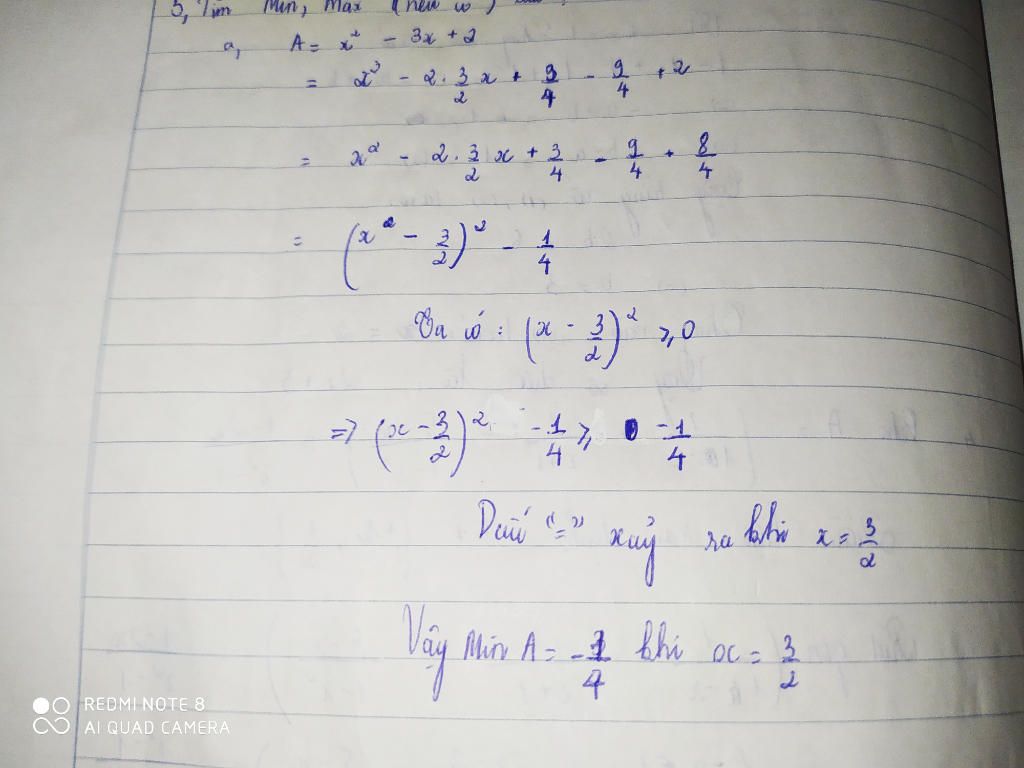 3, Tìm Min, Max (nếu có)
a, A = x² - 3x + 2
= x³ - 2. 3/2 x + 9/4 - 9/4 + 2
= x² - 2. 3/2 x + 3/4 - 9/4 + 8/4
= (x² - 3/2)² - 1/4
Ta có : (x - 3/2)² ≥ 0
=> (x - 3/2)² - 1/4 ≥ -1/4
Dấu "=" xảy ra khi x = 3/2
Vậy Min A = -1/4 khi x = 3/2
REDMI NOTE 8
AI QUAD CAMERA